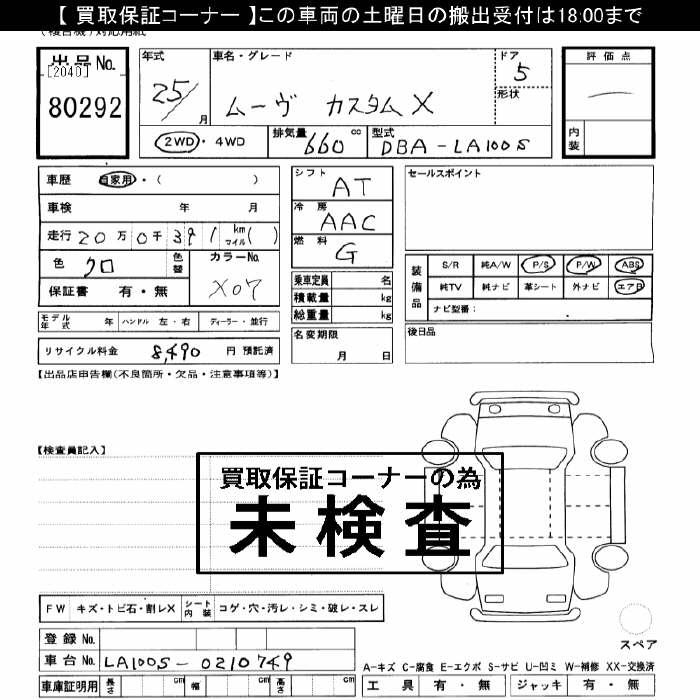 【 買取保証コーナー 】この車両の土曜日の搬出受付は18:00まで
出品No.
[2040]
80292
年式
25/
月
車名・グレード
ムーヴ カスタムX
ドア
5
形状
2WD ・ 4WD
排気量
660 cc
型式
DBA-LA100S
評価点
内装
車歴 自家用・( )
車検 年 月
走行 20万0千391 km マイル( )
色 クロ
色替
カラーNo.
X07
保証書 有・無
モデル年式 年 ハンドル 左・右 ディーラー・並行
リサイクル料金 8,490 円 預託済
シフト
AT
冷房
AAC
燃料
G
乗車定員 名
積載量 kg
総重量 kg
名変期限
月 日
セールスポイント
装備品
S/R 純A/W P/S P/W ABS
純TV 純ナビ 革シート 外ナビ エアB
ナビ型番:
後日品
【出品店申告欄(不良箇所・欠品・注意事項等)】
【検査員記入】
買取保証コーナーの為
未検査
FW キズ・トビ石・割レX シート内装 コゲ・穴・汚レ・シミ・破レ・スレ
スペア
登録No.
車台No. LA100S-0210749
車庫証明用 長さ cm 幅 cm 高さ cm
A-キズ C-腐食 E-エクボ S-サビ U-凹ミ W-補修 XX-交換済
工具 有・無 ジャッキ 有・無